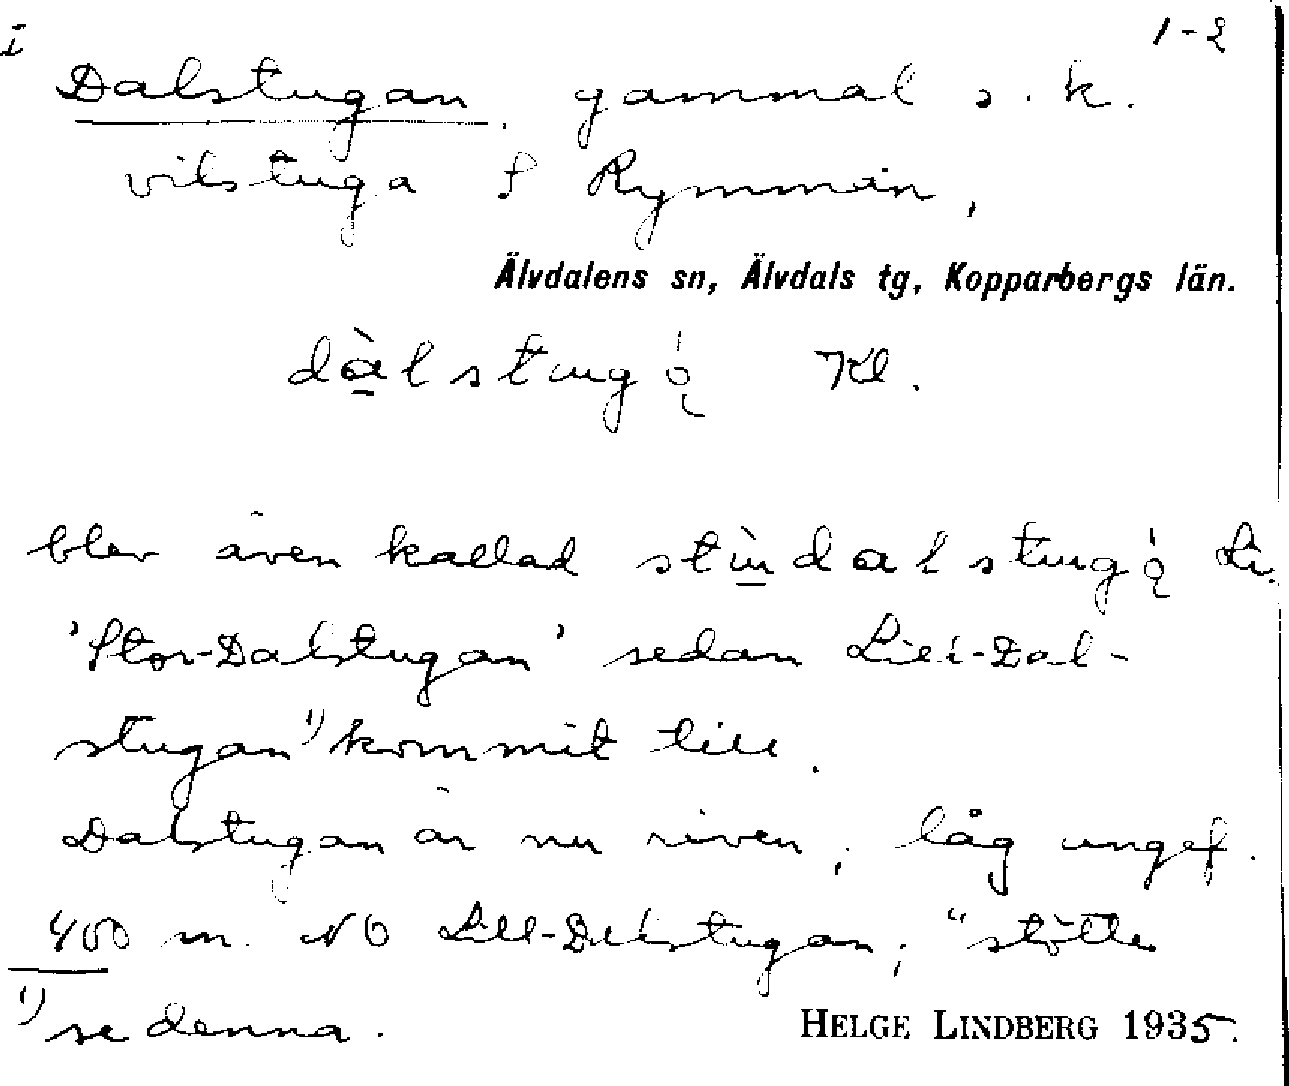 I 1-2
Dalstugan, gammal s.k.
vilstuga S Rymmån,
Älvdalens sn, Älvdals tg, Kopparbergs län.
dàlstugǫ́ Kl.
blev även kallad stùdalstugǫ́ Li.
'Stor-Dalstugan' sedan Lill-Dal-
stugan 1) kommit till.
Dalstugan är nu riven, låg ungef.
400 m. NO Lill-Dalstugan; "stötte
1) se denna.
HELGE LINDBERG 1935.